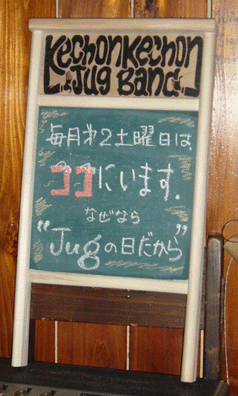 KechonKechon
Jug Band
毎月才2土曜日は
ココにいます。
なぜなら
"Jugの日だから"